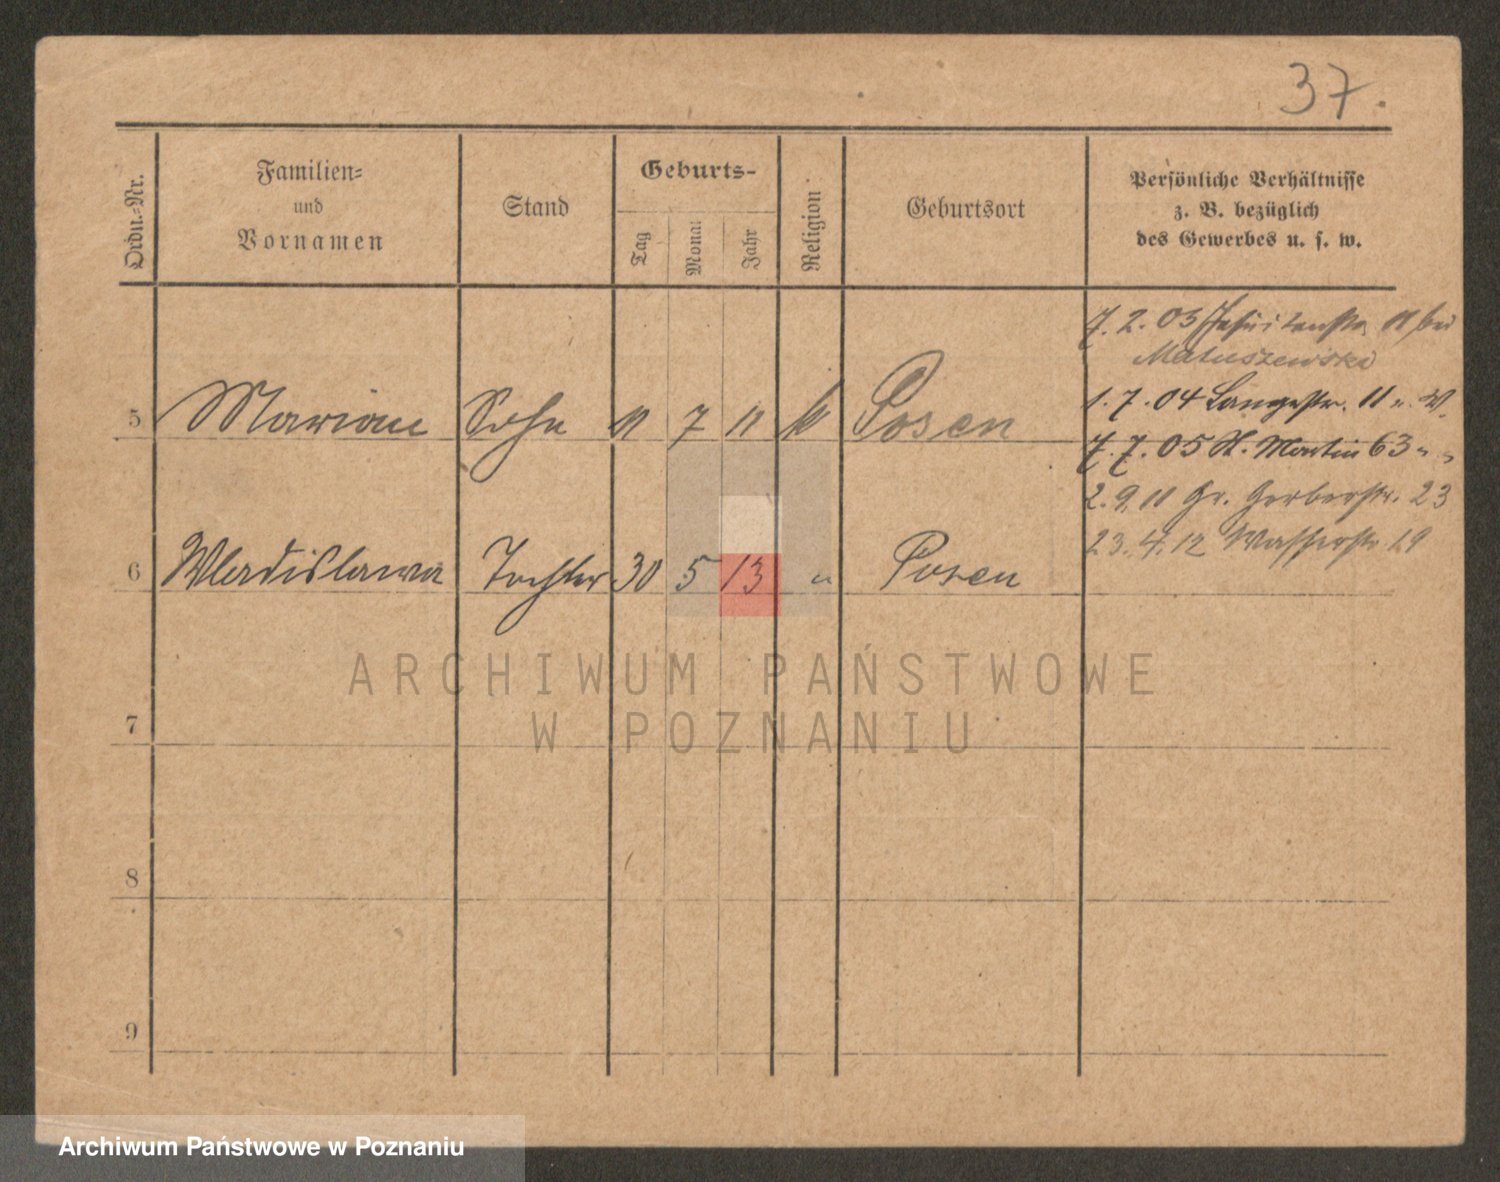 37.
Ordn.-Nr.
Familien-
und
Vornamen
Stand
Geburts-
Tag
Monat
Jahr
Religion
Geburtsort
Persönliche Verhältnisse
z. B. bezüglich
des Gewerbes u. s. w.
7. 2. 03 Jesuitenstr. 11 bei
Matuszewski
1. 7. 04 Langestr. 11 u. W.
5 Marian Sohn 11 7 11 k Posen
7. 7. 05 St. Martin 63 " "
2. 9. 11 Gr. Gerberstr. 23
23. 4. 12 Wasserstr. 19
6 Wladislawa Tochter 30 5 13 " Posen
ARCHIWUM PAŃSTWOWE
W POZNANIU
7
8
9
Archiwum Państwowe w Poznaniu